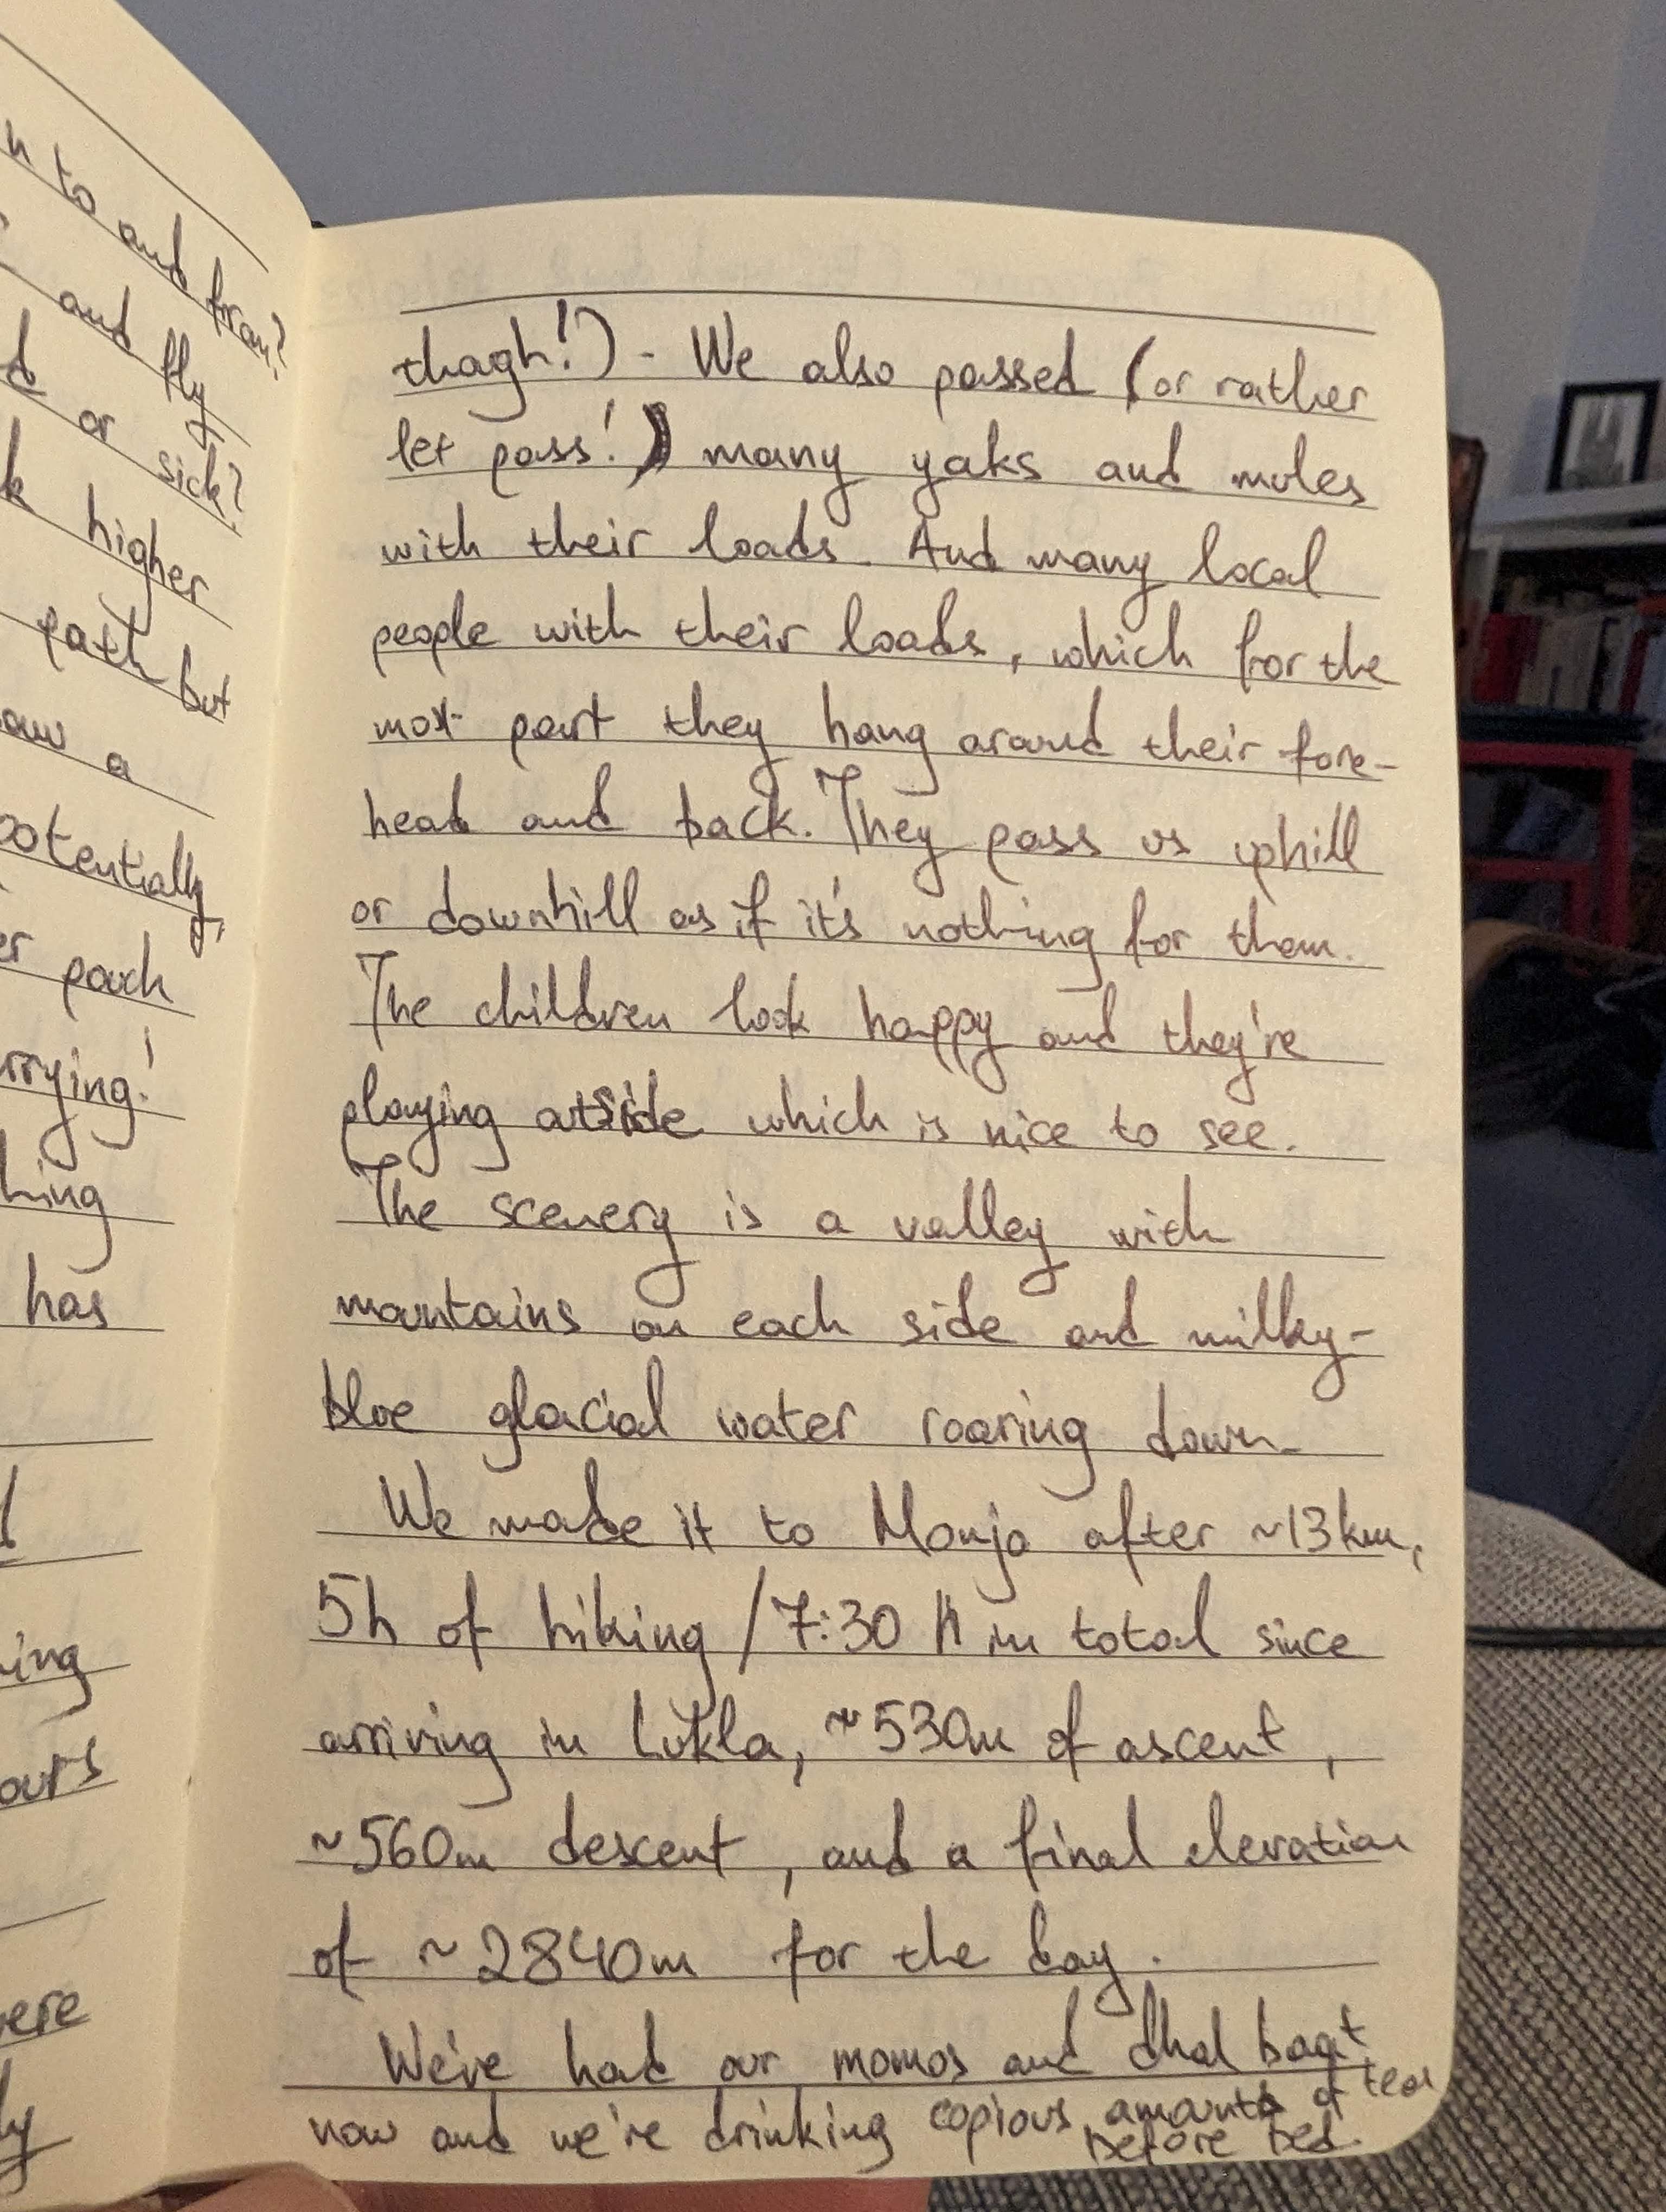 n to and from?
and fly
d or sick?
k higher
path but
aw a
potentially,
er pouch
rrying!
hing
has
ing
ours
ere
ly
though!) - We also passed (or rather
let pass!) many yaks and mules
with their loads. And many local
people with their loads, which for the
most part they hang around their fore-
head and back. They pass us uphill
or downhill as if it's nothing for them.
The children look happy and they're
playing outside which is nice to see.
The scenery is a valley with
mountains on each side and milky-
blue glacial water roaring down.
We made it to Monjo after ~13km,
5h of hiking / 7:30 h in total since
arriving in Lukla, ~530m of ascent,
~560m descent, and a final elevation
of ~2840m for the day.
We've had our momos and dhal baat
now and we're drinking copious amounts of tea
before bed.